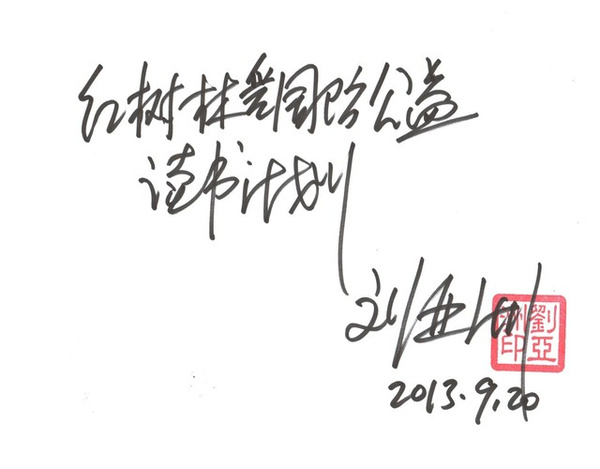 红树林 国 公益
读书计划
刘亚洲
劉亞洲印
2013.9.20